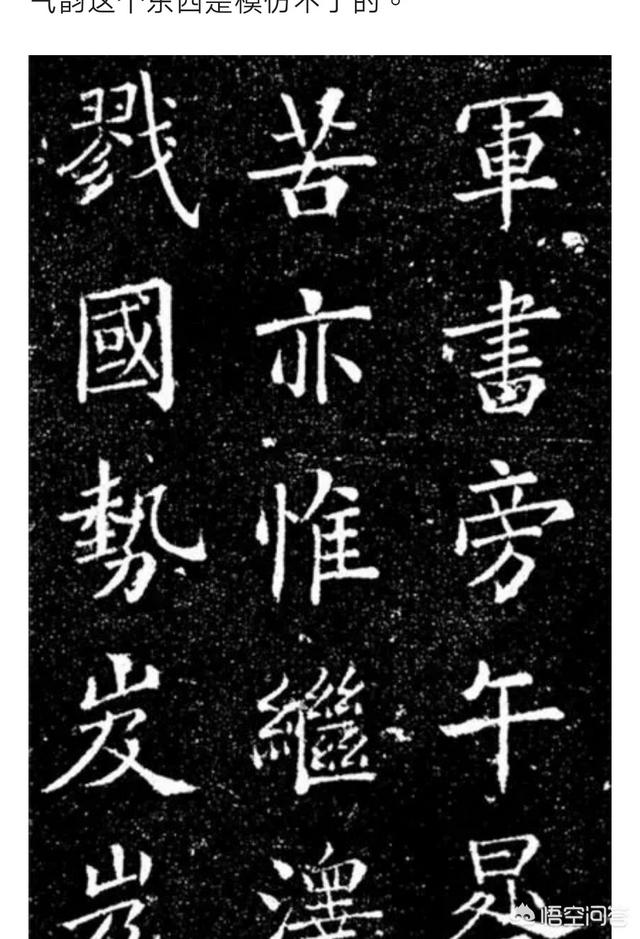 气韵这个东西是模仿不了的。
軍書旁午
苦亦惟繼澤
戮國勢岌岌
悟空问答